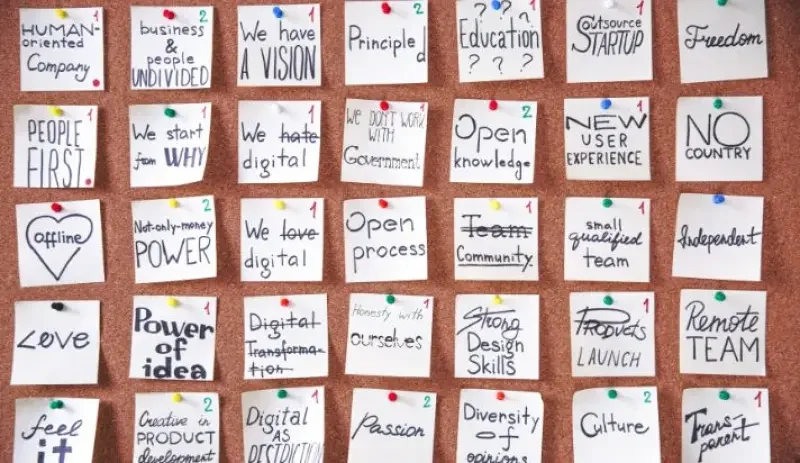 HUMAN-
oriented
Company
1
business
&
people
UNDIVIDED
2
We have
A VISION
1
Principled
2
? ? ?
Education
? ? ?
1
Outsource
STARTUP
1
Freedom
PEOPLE
FIRST
1
We start
from WHY
1
We hate
digital
1
WE DON'T WORK
WITH
Government
1
Open
knowledge
2
NEW
USER
EXPERIENCE
1
NO
COUNTRY
offline
Not-only-money
POWER
2
We love
digital
1
Open
process
Team
Community
1
small
qualified
team
2
Independent
Love
Power
of
idea
1
Digital
Transforma-
tion
Honesty with
ourselves
1
Strong
Design
Skills
Products
LAUNCH
1
Remote
TEAM
feel
it
Creative in
PRODUCT
development
2
Digital
AS
DESTRUCTION
1
Passion
2
Diversity
of
opinions
Culture
2
Trans-
parent
1